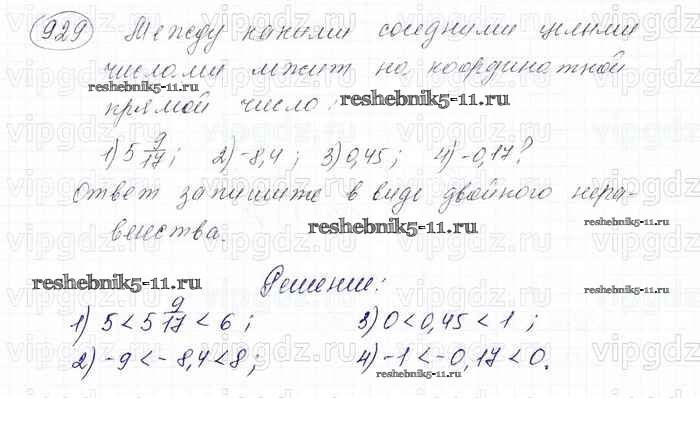 929 Между какими соседними целыми
числами лежит на координатной
reshebnik5-11.ru
прямой число: reshebnik5-11.ru
1) 5 9/17; 2) -8,4; 3) 0,45; 4) -0,17?
Ответ запишите в виде двойного нера-
венства. reshebnik5-11.ru reshebnik5-11.ru
reshebnik5-11.ru Решение:
1) 5 < 5 9/17 < 6; 3) 0 < 0,45 < 1;
2) -9 < -8,4 < 8; 4) -1 < -0,17 < 0.
reshebnik5-11.ru
vipgdz.ru